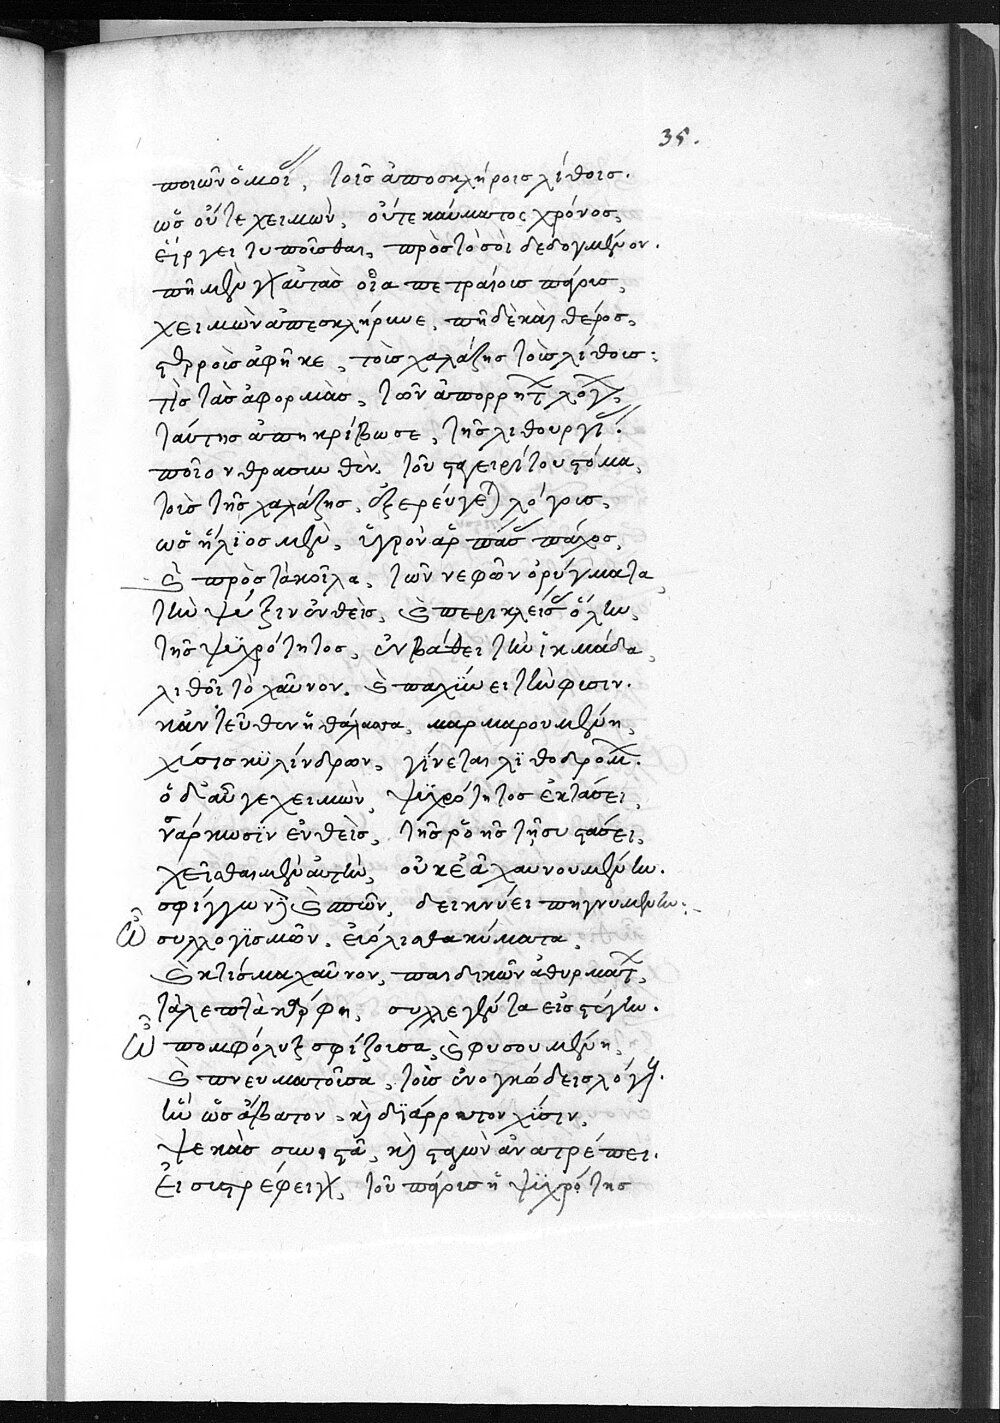 35.
ποιῶν ὅμοι, τοῖς ἀποσκλήροις λίθοις.
ὡς οὔτε χειμὼν, οὔτε καύματος χρόνος,
εἴργει τυποῖσθαι, πρὸς τὸ σοὶ δεδογμένον.
πῆ μὲν γὰρ αὐτὰς οἷα πετραίοις πάγοις,
χειμὼν ἀπεσκλήρωσε, πῆ δὲ καὶ θέρος,
στερροῖς ἀφῆκε, τοῖς χαλάζης τοῖς λίθοις:
τίς τὰς ἀφορμὰς, τῶν ἀπορρήτων λόγων,
ταύτης ἀπηκρίβωσε, τῆς λιθουργίας.
ποῖον θρασυνθὲν, τοῦ σταγειρίτου στόμα,
τοῖς τῆς χαλάζης, ἐξερεύγεται λόγοις,
ὡς ἥλϊος μὲν, ὑγρὸν ἂρ πᾶς πάχος,
καὶ πρὸς τὰ κοῖλα, τῶν νεφῶν ὀρύγματα
τὴν ψύξιν ἐνθεὶς, καὶ περικλείσας ὅλην,
τῆς ψϋχρότητος, ἐν βάθει τὴν ἰκμάδα,
λιθοῖ τὸ χαῦνον, καὶ παχύνει τὴν φύσιν.
κἀντεῦθεν ἡ θάλασσα, μαρμαρουμένη,
χύσις κϋλίνδρων, γίνεται λϊθοδρόμων.
ὁ δ' αὖ γε χειμὼν, ψϋχρότητος ἐκτάσει,
νάρκωσϊν ἐνθεὶς, τῆς ῥοῆς τῇ συστάσει,
χεῖσθαι μὲν αὐτὴν, οὐκ ἐᾷ χαυνουμένην.
σφίγγων δὲ καὶ σπῶν, δεικνύει πηγνυμένην:
Ὢ συλλογϊσμῶν, εὐόλισθα κύματα,
καὶ κτίσμα χαῦνον, παιδικῶν ἀθυρμάτων,
τὰ λεπτὰ κάρφη, συλλεγέντα εἰς στέγην.
Ὢ πομφόλυξ σφύζουσα, καὶ φυσουμένη,
καὶ πνευματοῦσα, τοῖς ἐνογκώδεις λόγοις.
ἣν ὡς ἄβατον, καὶ δϊάρρυτον χύσιν,
ψεκὰς συνιστᾶ, καὶ σταγὼν ἀνατρέπει.
Εἰ συστρέφει γὰρ, τοῦ πάγους ἡ ψϋχρότης